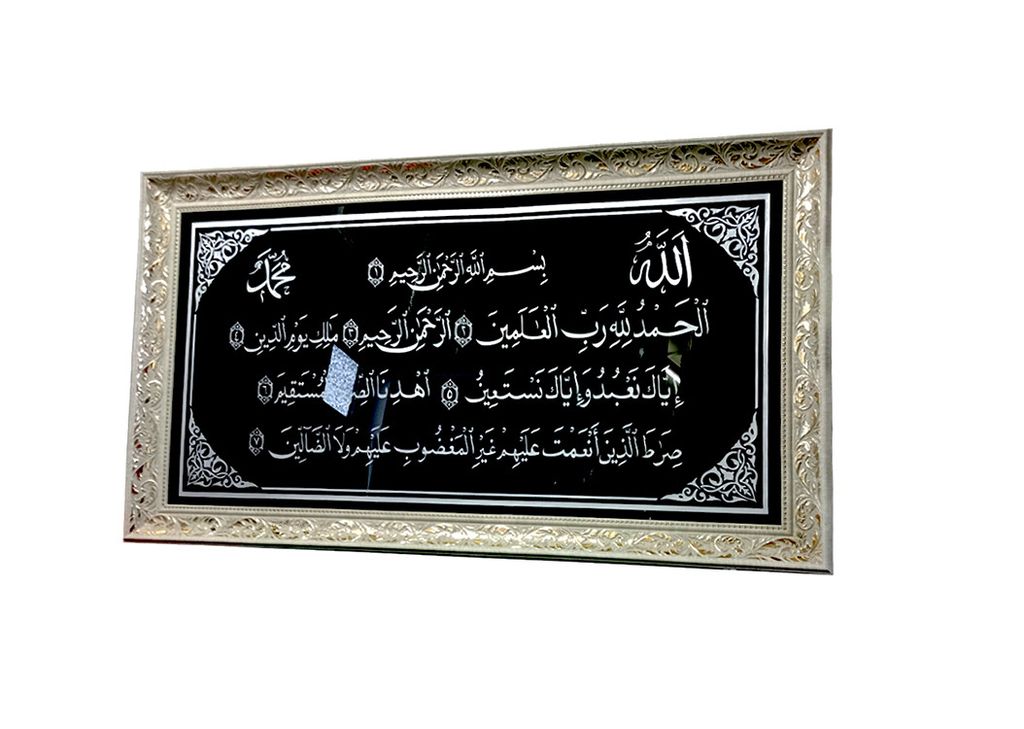 اللّٰهُ
بِسْمِ اللَّهِ الرَّحْمَٰنِ الرَّحِيمِ ١
مُحَمَّد
الْحَمْدُ لِلَّهِ رَبِّ الْعَالَمِينَ ٢ الرَّحْمَٰنِ الرَّحِيمِ ٣ مَالِكِ يَوْمِ الدِّينِ ٤
إِيَّاكَ نَعْبُدُ وَإِيَّاكَ نَسْتَعِينُ ٥ اهْدِنَا الصِّرَاطَ الْمُسْتَقِيمَ ٦
صِرَاطَ الَّذِينَ أَنْعَمْتَ عَلَيْهِمْ غَيْرِ الْمَغْضُوبِ عَلَيْهِمْ وَلَا الضَّالِّينَ ٧